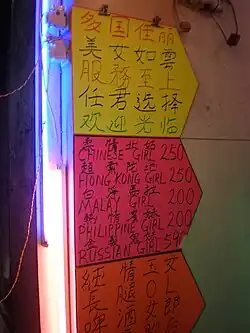 多国佳丽
美女如雲
服務至上
任君选择
欢迎光临
CHINESE GIRL 250
HONG KONG GIRL 250
MALAY GIRL 200
PHILIPPINE GIRL 200
RUSSIAN GIRL
純情玉女
長腿OL
啤酒女郎